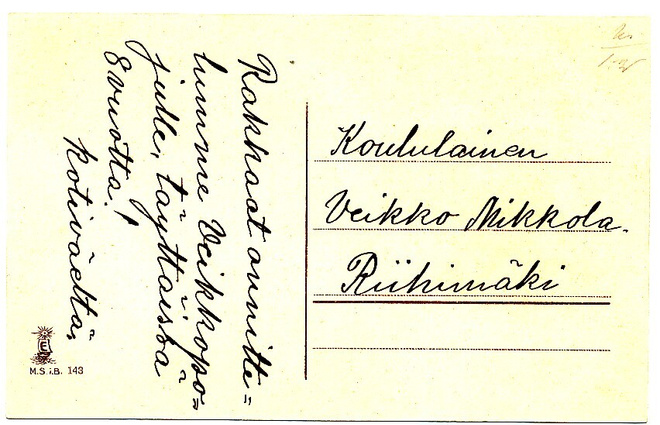 Rakkaat onnitte-
lumme Veikkopo-
jalle, täyttäissä
8 vuotta!
Kotiväeltä.
Koululainen
Veikko Mikkola.
Riihimäki
M.S.i.B. 143